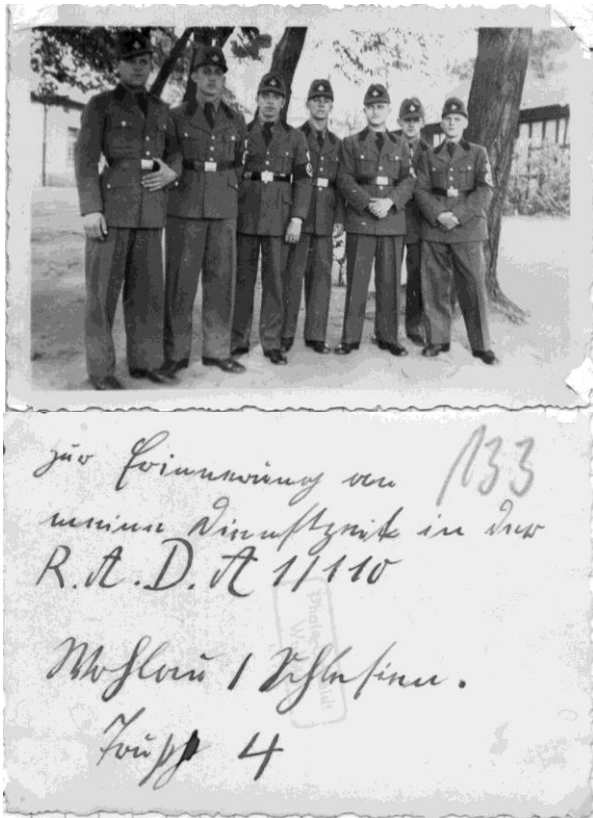 zur Erinnerung an 133
meine Dienstzeit in der
R.A.D.A 1/110
Wohlau / Schlesien.
Trupp 4